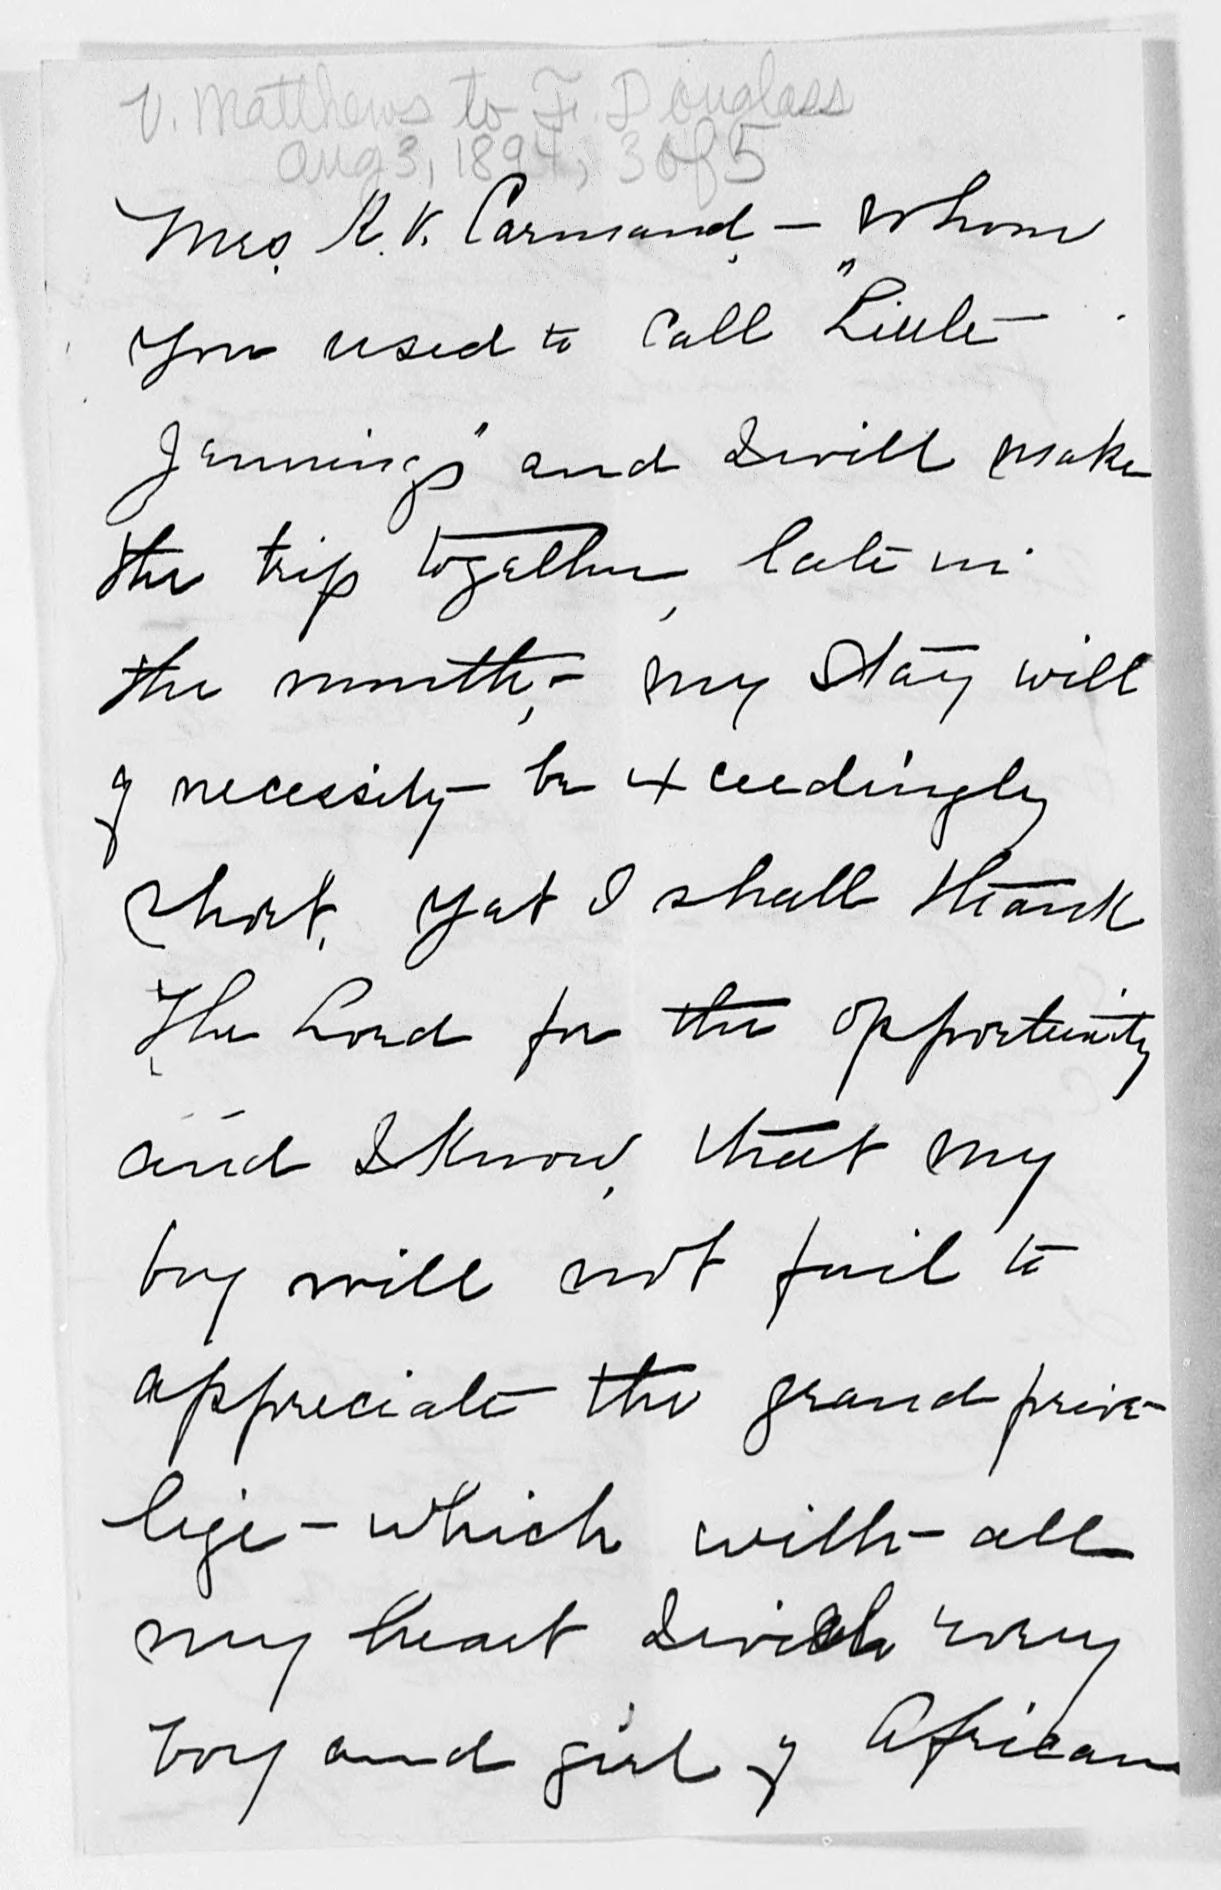 V. Matthews to F. Douglass
Aug 3, 1894, 3 of 5
Mrs. R. V. Carmand, – whom
you used to call "Little
Jennings" and I will make
the trip together, late in
the month, – my stay will
of necessity – be exceedingly
short, yet I shall thank
The Lord for the opportunity
and I know, that my
boy will not fail to
appreciate the grand prive-
lige – which with – all
my heart I wish every
boy and girl of African